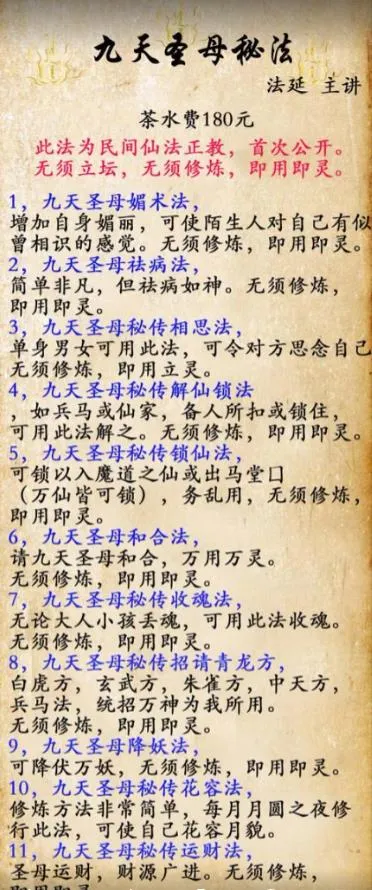 九天圣母秘法
法延 主讲
茶水费180元
此法为民间仙法正教，首次公开。
无须立坛，无须修炼，即用即灵。
1，九天圣母媚术法，
增加自身媚丽，可使陌生人对自己有似
曾相识的感觉。无须修炼，即用即灵。
2，九天圣母祛病法，
简单非凡，但祛病如神。无须修炼，
即用即灵。
3，九天圣母秘传相思法，
单身男女可用此法，可令对方思念自己
无须修炼，即用立灵。
4，九天圣母秘传解仙锁法
，如兵马或仙家，备人所扣或锁住，
可用此法解之。无须修炼，即用即灵。
5，九天圣母秘传锁仙法，
可锁以入魔道之仙或出马堂口
（万仙皆可锁），务乱用，无须修炼，
即用即灵。
6，九天圣母和合法，
请九天圣母和合，万用万灵。
无须修炼，即用即灵。
7，九天圣母秘传收魂法，
无论大人小孩丢魂，可用此法收魂。
无须修炼，即用即灵。
8，九天圣母秘传招请青龙方，
白虎方，玄武方，朱雀方，中天方，
兵马法，统招万神为我所用。
无须修炼，即用即灵。
9，九天圣母降妖法，
可降伏万妖，无须修炼，即用即灵。
10，九天圣母秘传花容法，
修炼方法非常简单，每月月圆之夜修
行此法，可使自己花容月貌。
11，九天圣母秘传运财法，
圣母运财，财源广进。无须修炼，
即用即灵。